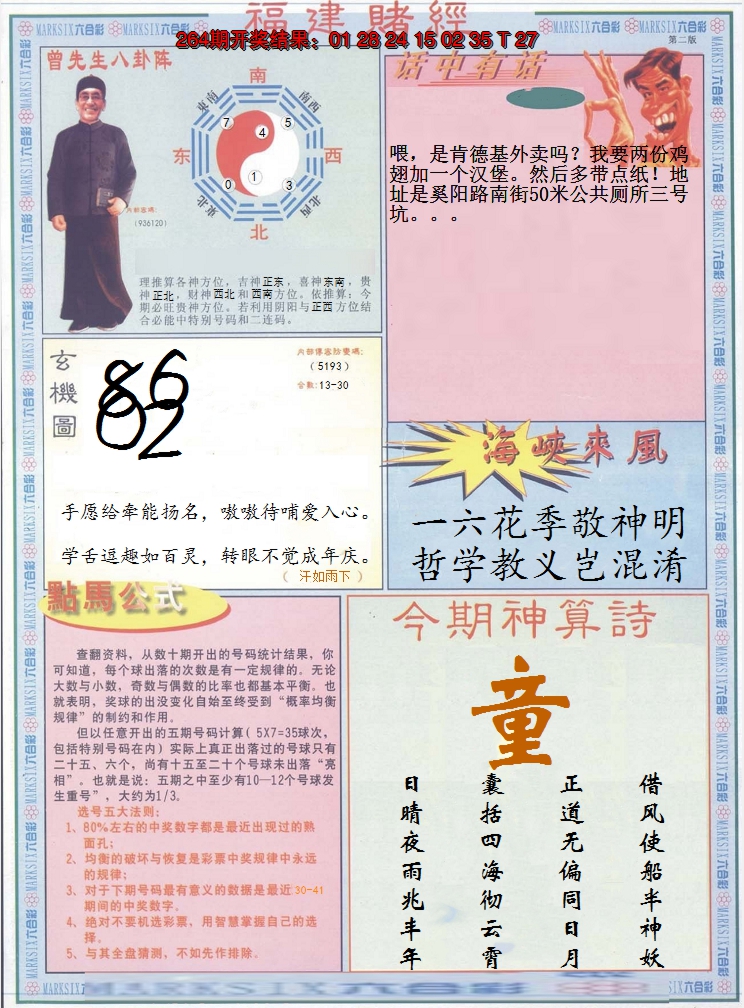 福建賭經
264期开奖结果：01 28 24 15 02 35 T 27
第二版
曾先生八卦阵
南
东南
南西
7
5
4
东
西
1
0
3
東北
北西
北
内部密碼:
(936120)
理推算各神方位，吉神正东，喜神东南，贵
神正北，财神西北和西南方位。依推算：今
期必旺贵神方位。若利用阴阳与正西方位结
合必能中特别号码和二连码。
话中有话
喂，是肯德基外卖吗？我要两份鸡
翅加一个汉堡。然后多带点纸！地
址是奚阳路南街50米公共厕所三号
坑。。。
玄機圖
86
02
(5193)
合数:13-30
手愿给牵能扬名，嗷嗷待哺爱入心。
学舌逗趣如百灵，转眼不觉成年庆。
（ 汗如雨下 ）
海峽來風
一六花季敬神明
哲学教义岂混淆
點馬公式
查翻资料，从数十期开出的号码统计结果，你
可知道，每个球出落的次数是有一定规律的。无论
大数与小数，奇数与偶数的比率也都基本平衡。也
就表明，奖球的出没变化自始至终受到“概率均衡
规律”的制约和作用。
但以任意开出的五期号码计算( 5X7=35球次，
包括特别号码在内) 实际上真正出落过的号球只有
二十五、六个，尚有十五至二十个号球未出落“亮
相”。也就是说：五期之中至少有10—12个号球发
生重号”，大约为1/3。
选号五大法则：
1、80%左右的中奖数字都是最近出现过的熟
面孔；
2、均衡的破坏与恢复是彩票中奖规律中永远
的规律；
3、对于下期号码最有意义的数据是最近 30-41
期间的中奖数字。
4、绝对不要机选彩票，用智慧掌握自己的选
择。
5、与其全盘猜测，不如先作排除。
今期神算詩
童
日晴夜雨兆丰年
囊括四海彻云霄
正道无偏同日月
借风使船半神妖
MARKSIX六合彩